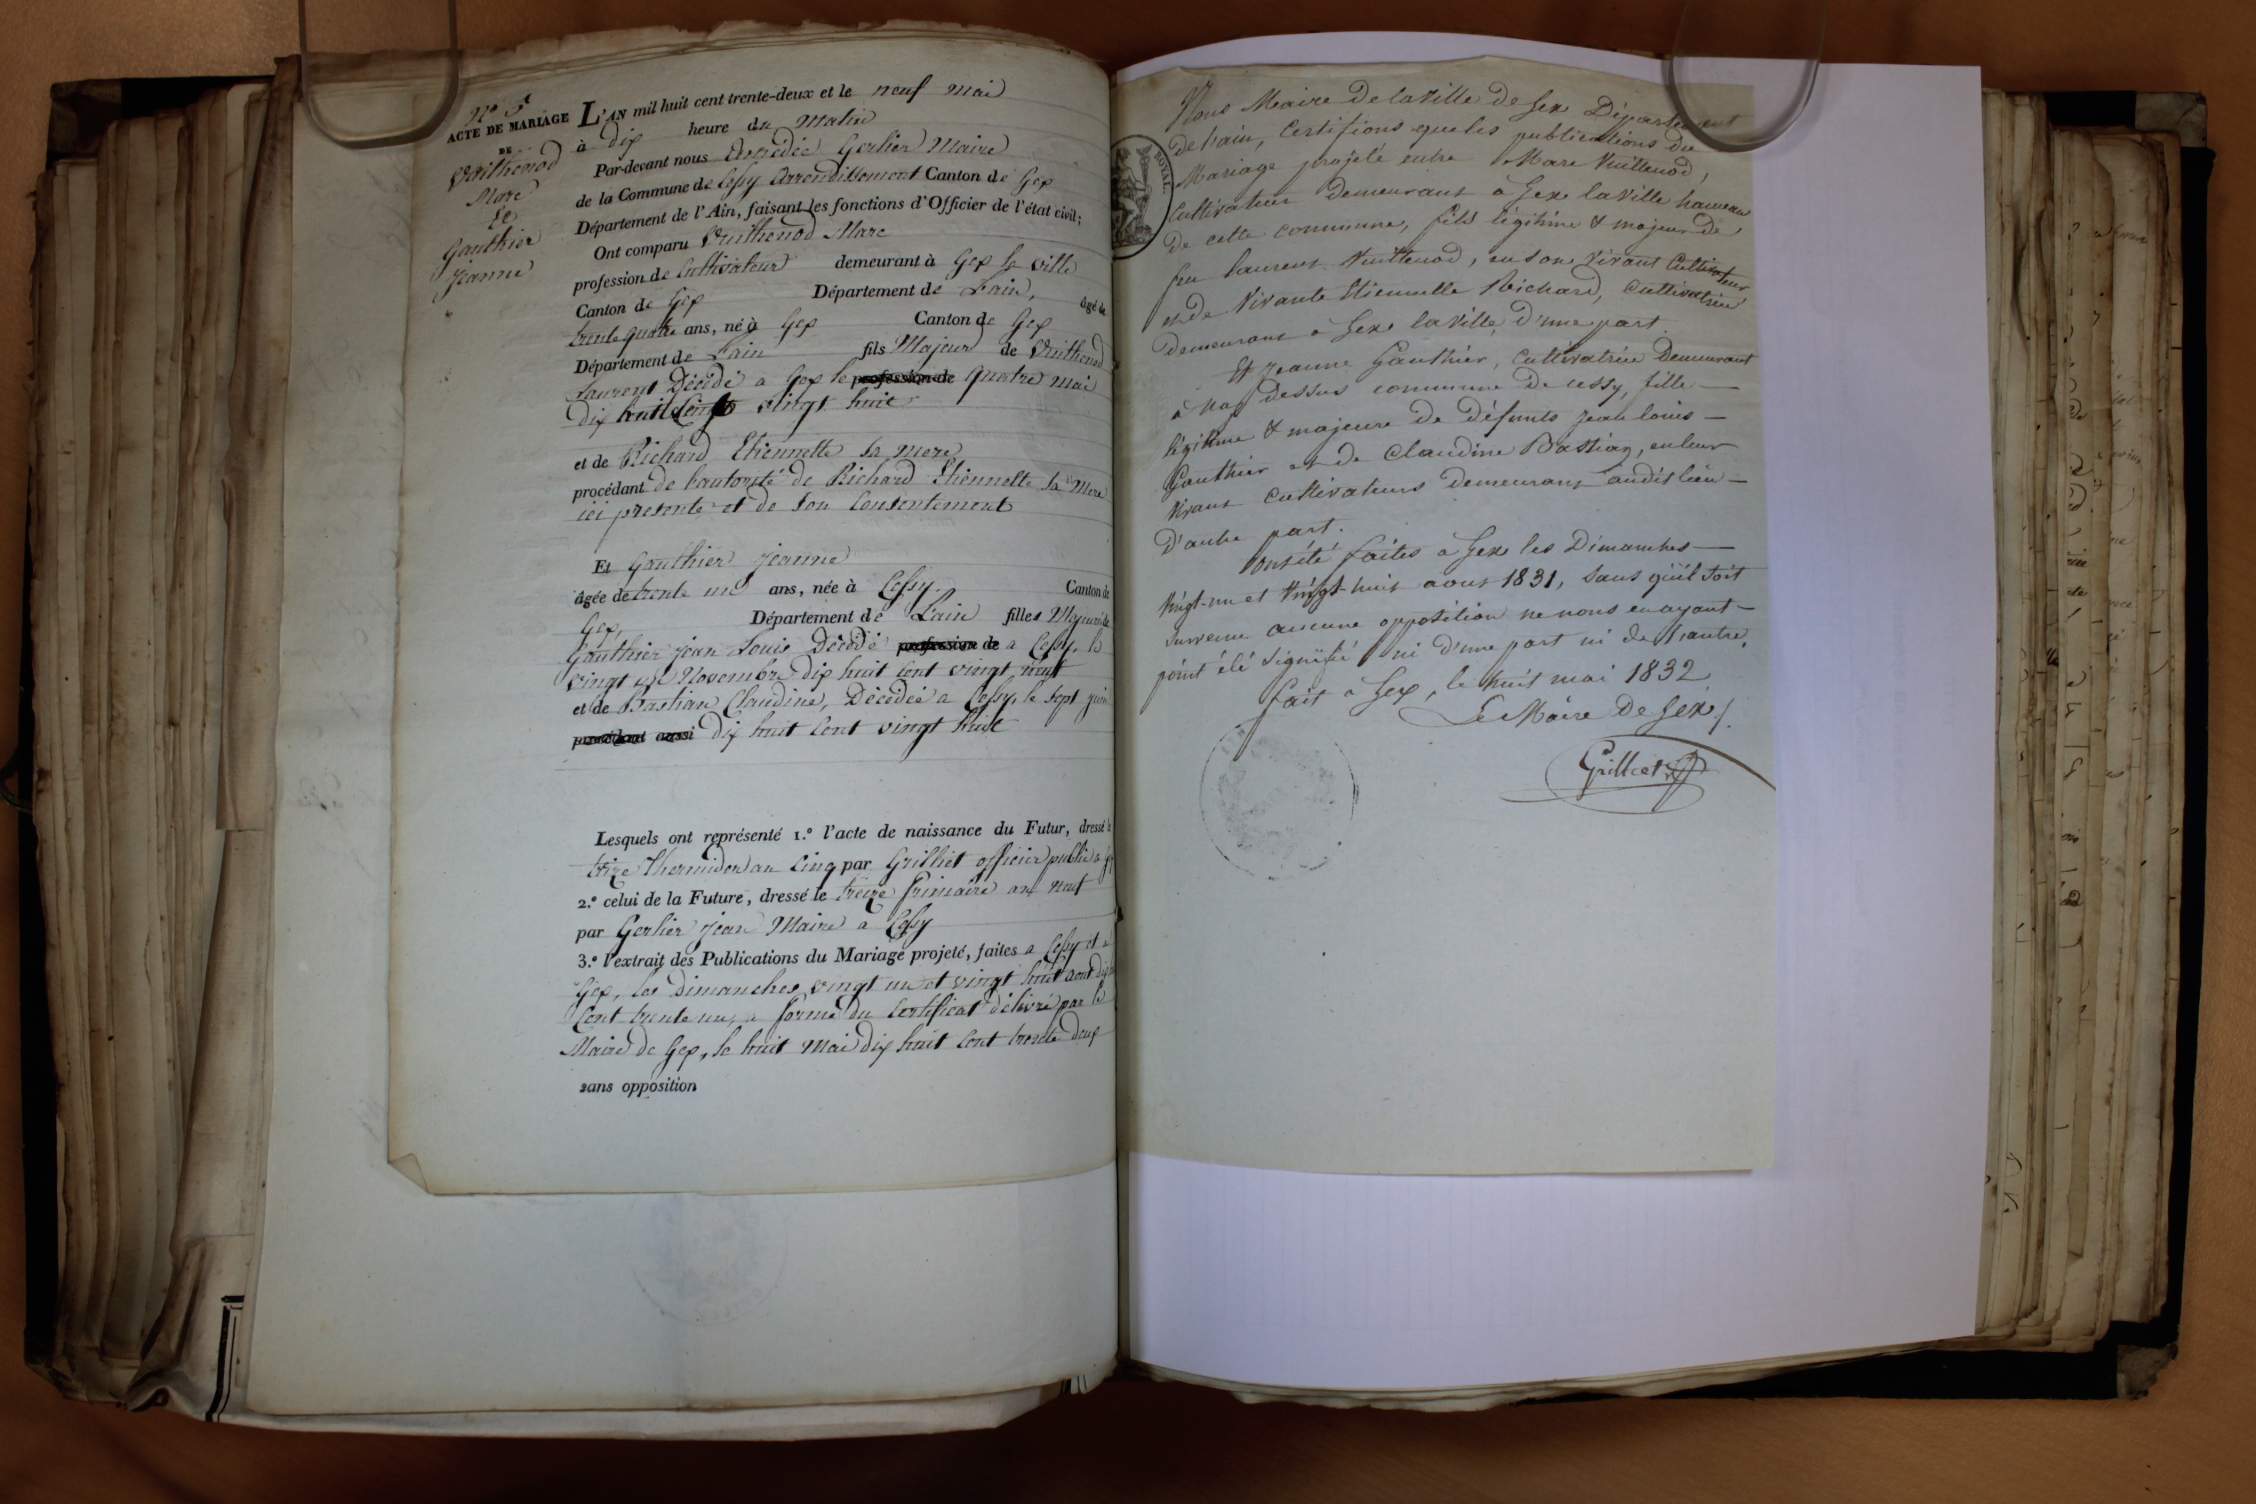 N° 5
ACTE DE MARIAGE
DE
Vuithenod
Marc
Et
Gauthier
Jeanne
L'AN mil huit cent trente-deux et le neuf mai
à dix heure du Matin
Par-devant nous Amédée Gerlier Maire
de la Commune de Cessy Arrondissement Canton de Gex
Département de l'Ain, faisant les fonctions d'Officier de l'état civil;
Ont comparu Vuithenod Marc
profession de Cultivateur demeurant à Gex la ville
Canton de Gex Département de L'ain, âgé de
trente quatre ans, né à Gex Canton de Gex
Département de L'ain fils Majeur de Vuithenod
Laurent Décédé a Gex le profession de quatre mai
dix huit Cent vingt huit
et de Richard Etiennette sa mere
procédant de l'autorité de Richard Etiennette sa Mere
ici presente et de son Consentement
Et Gauthier Jeanne
âgée de trente un ans, née à Cessy. Canton de
Gex Département de L'ain filles Majeure de
Gauthier Jean Louis Décédé profession de a Cessy, le
vingt un Novembre dix huit Cent vingt neuf
et de Bastian Claudine, Décédée a Cessy, le sept juin
procédant aussi dix huit Cent vingt huit
Lesquels ont représenté 1.° l'acte de naissance du Futur, dressé le
treize Thermidor an Cinq par Grilliet officier public a Gex
2.° celui de la Future, dressé le treize frimaire an neuf
par Gerlier Jean Maire a Cessy
3.° l'extrait des Publications du Mariage projeté, faites a Cessy et a
Gex, les Dimanches vingt un et vingt huit aout dix huit
Cent trente un, a forme du Certificat délivré par le
Maire de Gex, le huit Mai dix huit Cent trente deux
sans opposition
ROYAL
Nous Maire De la Ville de Gex Département
De l'ain, Certifions que les publications du
Mariage projeté entre Marc Vuittenod,
Cultivateur Demeurant à Gex la Ville hameau
De cette commune, fils légitime & majeur de
feu Laurent Vuittenod, en son Vivant Cultivateur
et de Vivante Etiennette Richard, Cultivatrice
demeurant à Gex la Ville, d'une part.
Et Jeanne Gauthier, Cultivatrice Demeurant
à Dessus commune De Cessy, fille
légitime & majeure de défunts Jean Louis
Gauthier et de Claudine Bastian, en leur
Vivant Cultivateurs Demeurans audit lieu
D'autre part.
Ont été faites à Gex les Dimanches
Vingt-un et Vingt-huit aout 1831, sans qu'il soit
survenu aucune opposition ne nous en ayant
point été signifié ni d'une part ni de l'autre.
fait à Gex, le huit mai 1832
Le Maire De Gex,
Grilliet